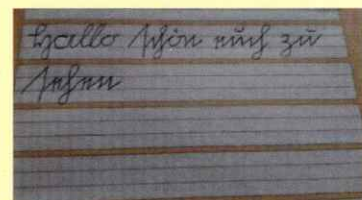 Hallo schön euch zu
sehen